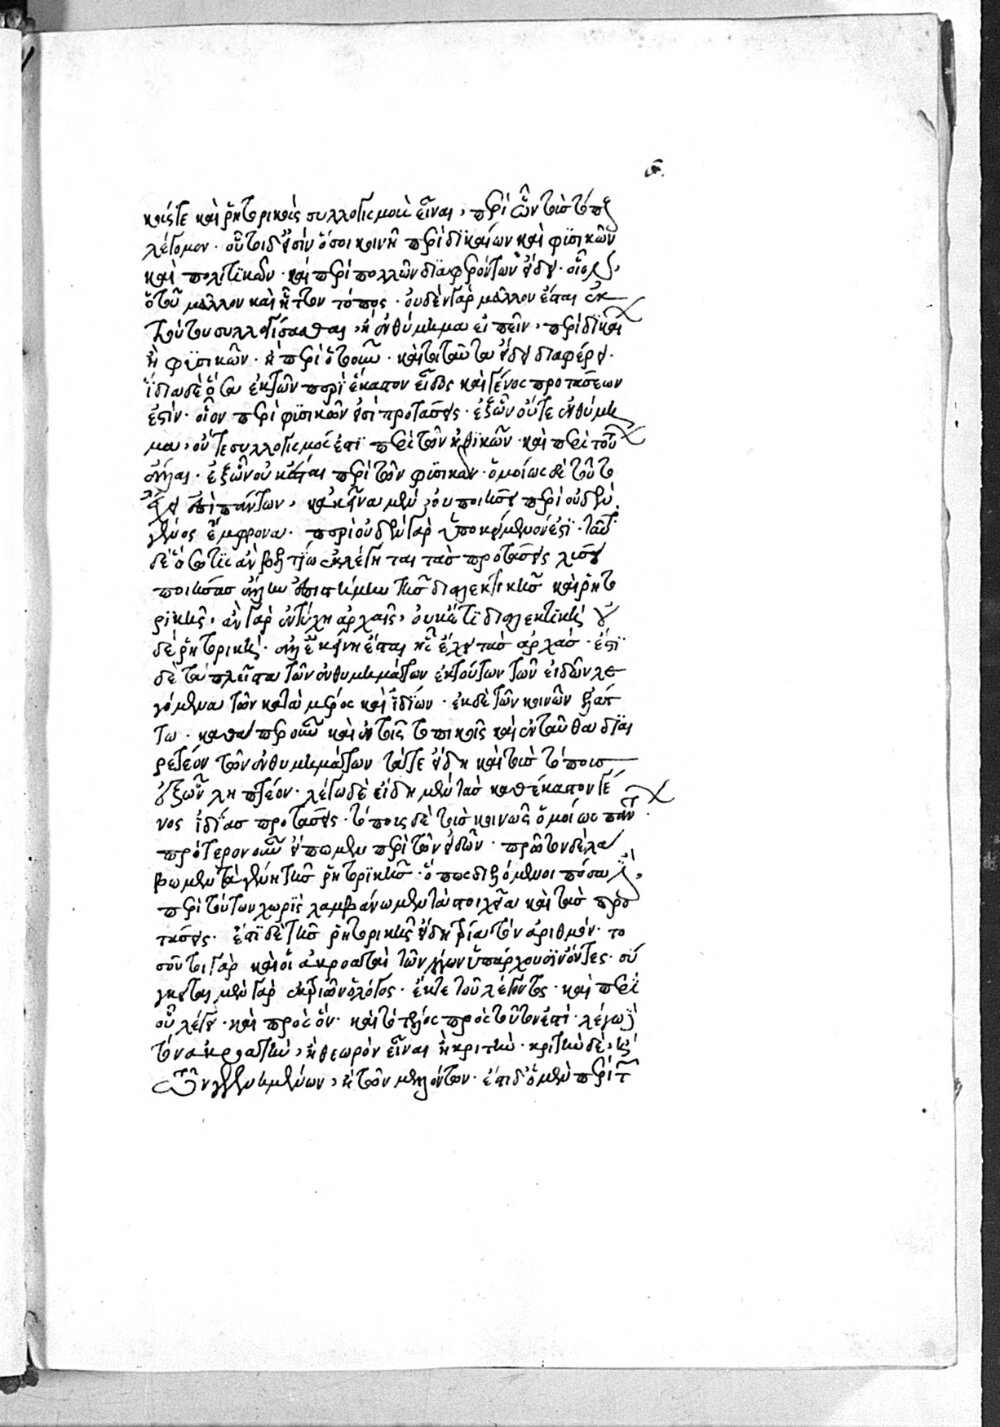 κούς τε καὶ ῥητορικοὺς συλλογισμοὺς εἶναι, περὶ ὧν τοὺς τόπους
λέγομεν· οὗτοι δ' εἰσὶν ὅσοι κοινῇ περὶ δικαίων καὶ φυσικῶν
καὶ πολιτικῶν· καὶ περὶ πολλῶν διαφερόντων εἴδει· οἷον,
ὁ τοῦ μᾶλλον καὶ ἧττον τόπος· οὐδὲν γὰρ μᾶλλον ἔσται ἐκ
τούτου συλλογίσασθαι, ἢ ἐνθύμημα εἰπεῖν, περὶ δικαί
ἢ φυσικῶν· ἢ περὶ ὁτουοῦν· καίτοι ταῦτα εἴδει διαφέρει·
ἴδια δὲ ὅσα ἐκ τῶν περὶ ἕκαστον εἶδος καὶ γένος προτάσεων
ἐστίν· οἷον περὶ φυσικῶν εἰσὶ προτάσεις· ἐξ ὧν οὔτε ἐνθύμη
μα, οὔτε συλλογισμός ἐστι περὶ τῶν ἠθικῶν· καὶ περὶ τού
ἄλλαι· ἐξ ὧν οὐκ ἔσται περὶ τῶν φυσικῶν· ὁμοίως δὲ τοῦτ
ἔχει ἐπὶ πάντων, κἀκεῖνα μὲν, οὐ ποιήσει περὶ οὐδὲν
γένος ἔμφρονα· περὶ οὐδὲν γὰρ ὑποκείμενόν ἐστι· ταῦτ
δὲ ὅσῳ τις ἂν βελτίω ἐκλέγηται τὰς προτάσεις λήσει
ποιήσας ἄλλην ἐπιστήμην τῆς διαλεκτικῆς καὶ ῥητο
ρικῆς, ἂν γὰρ ἐντύχῃ ἀρχαῖς, οὐκέτι διαλεκτικὴ οὐ
δὲ ῥητορικὴ· ἀλλ' ἐκείνη ἔσται ἧς ἔχει τὰς ἀρχάς· ἔστι
δὲ τὰ πλεῖστα τῶν ἐνθυμημάτων ἐκ τούτων τῶν εἰδῶν λε
γόμενα τῶν κατὰ μέρος καὶ ἰδίων· ἐκ δὲ τῶν κοινῶν ἐλάτ
τω· καθάπερ οὖν καὶ ἐν τοῖς τοπικοῖς καὶ ἐνταῦθα διαι
ρετέον τῶν ἐνθυμημάτων τά τε εἴδη καὶ τοὺς τόπους
ἐξ ὧν ληπτέον· λέγω δὲ εἴδη μὲν τὰς καθ' ἕκαστον γέ
νος ἰδίας προτάσεις· τόπους δὲ τοὺς κοινοὺς ὁμοίως πάν
πρότερον οὖν εἴπωμεν περὶ τῶν εἰδῶν· πρῶτον δὲ λά
βωμεν τὰ γένη τῆς ῥητορικῆς· ὅπως διελόμενοι πόσα,
περὶ τούτων χωρὶς λαμβάνωμεν τὰ στοιχεῖα καὶ τὰς προ
τάσεις· ἔστι δὲ τῆς ῥητορικῆς εἴδη τρία τὸν ἀριθμόν· το
σοῦτοι γὰρ καὶ οἱ ἀκροαταὶ τῶν λόγων ὑπάρχουσιν ὄντες· σύ
γκειται μὲν γὰρ ἐκ τριῶν ὁ λόγος· ἔκ τε τοῦ λέγοντος· καὶ περὶ
οὗ λέγει· καὶ πρὸς ὅν· καὶ τὸ τέλος πρὸς τοῦτόν ἐστι· λέγω δὲ
τὸν ἀκροατὴν, ἢ θεωρὸν εἶναι ἢ κριτὴν· κριτὴν δὲ, ἢ
τῶν γεγενημένων, ἢ τῶν μελλόντων· ἔστι δ' ὁ μὲν περὶ τ